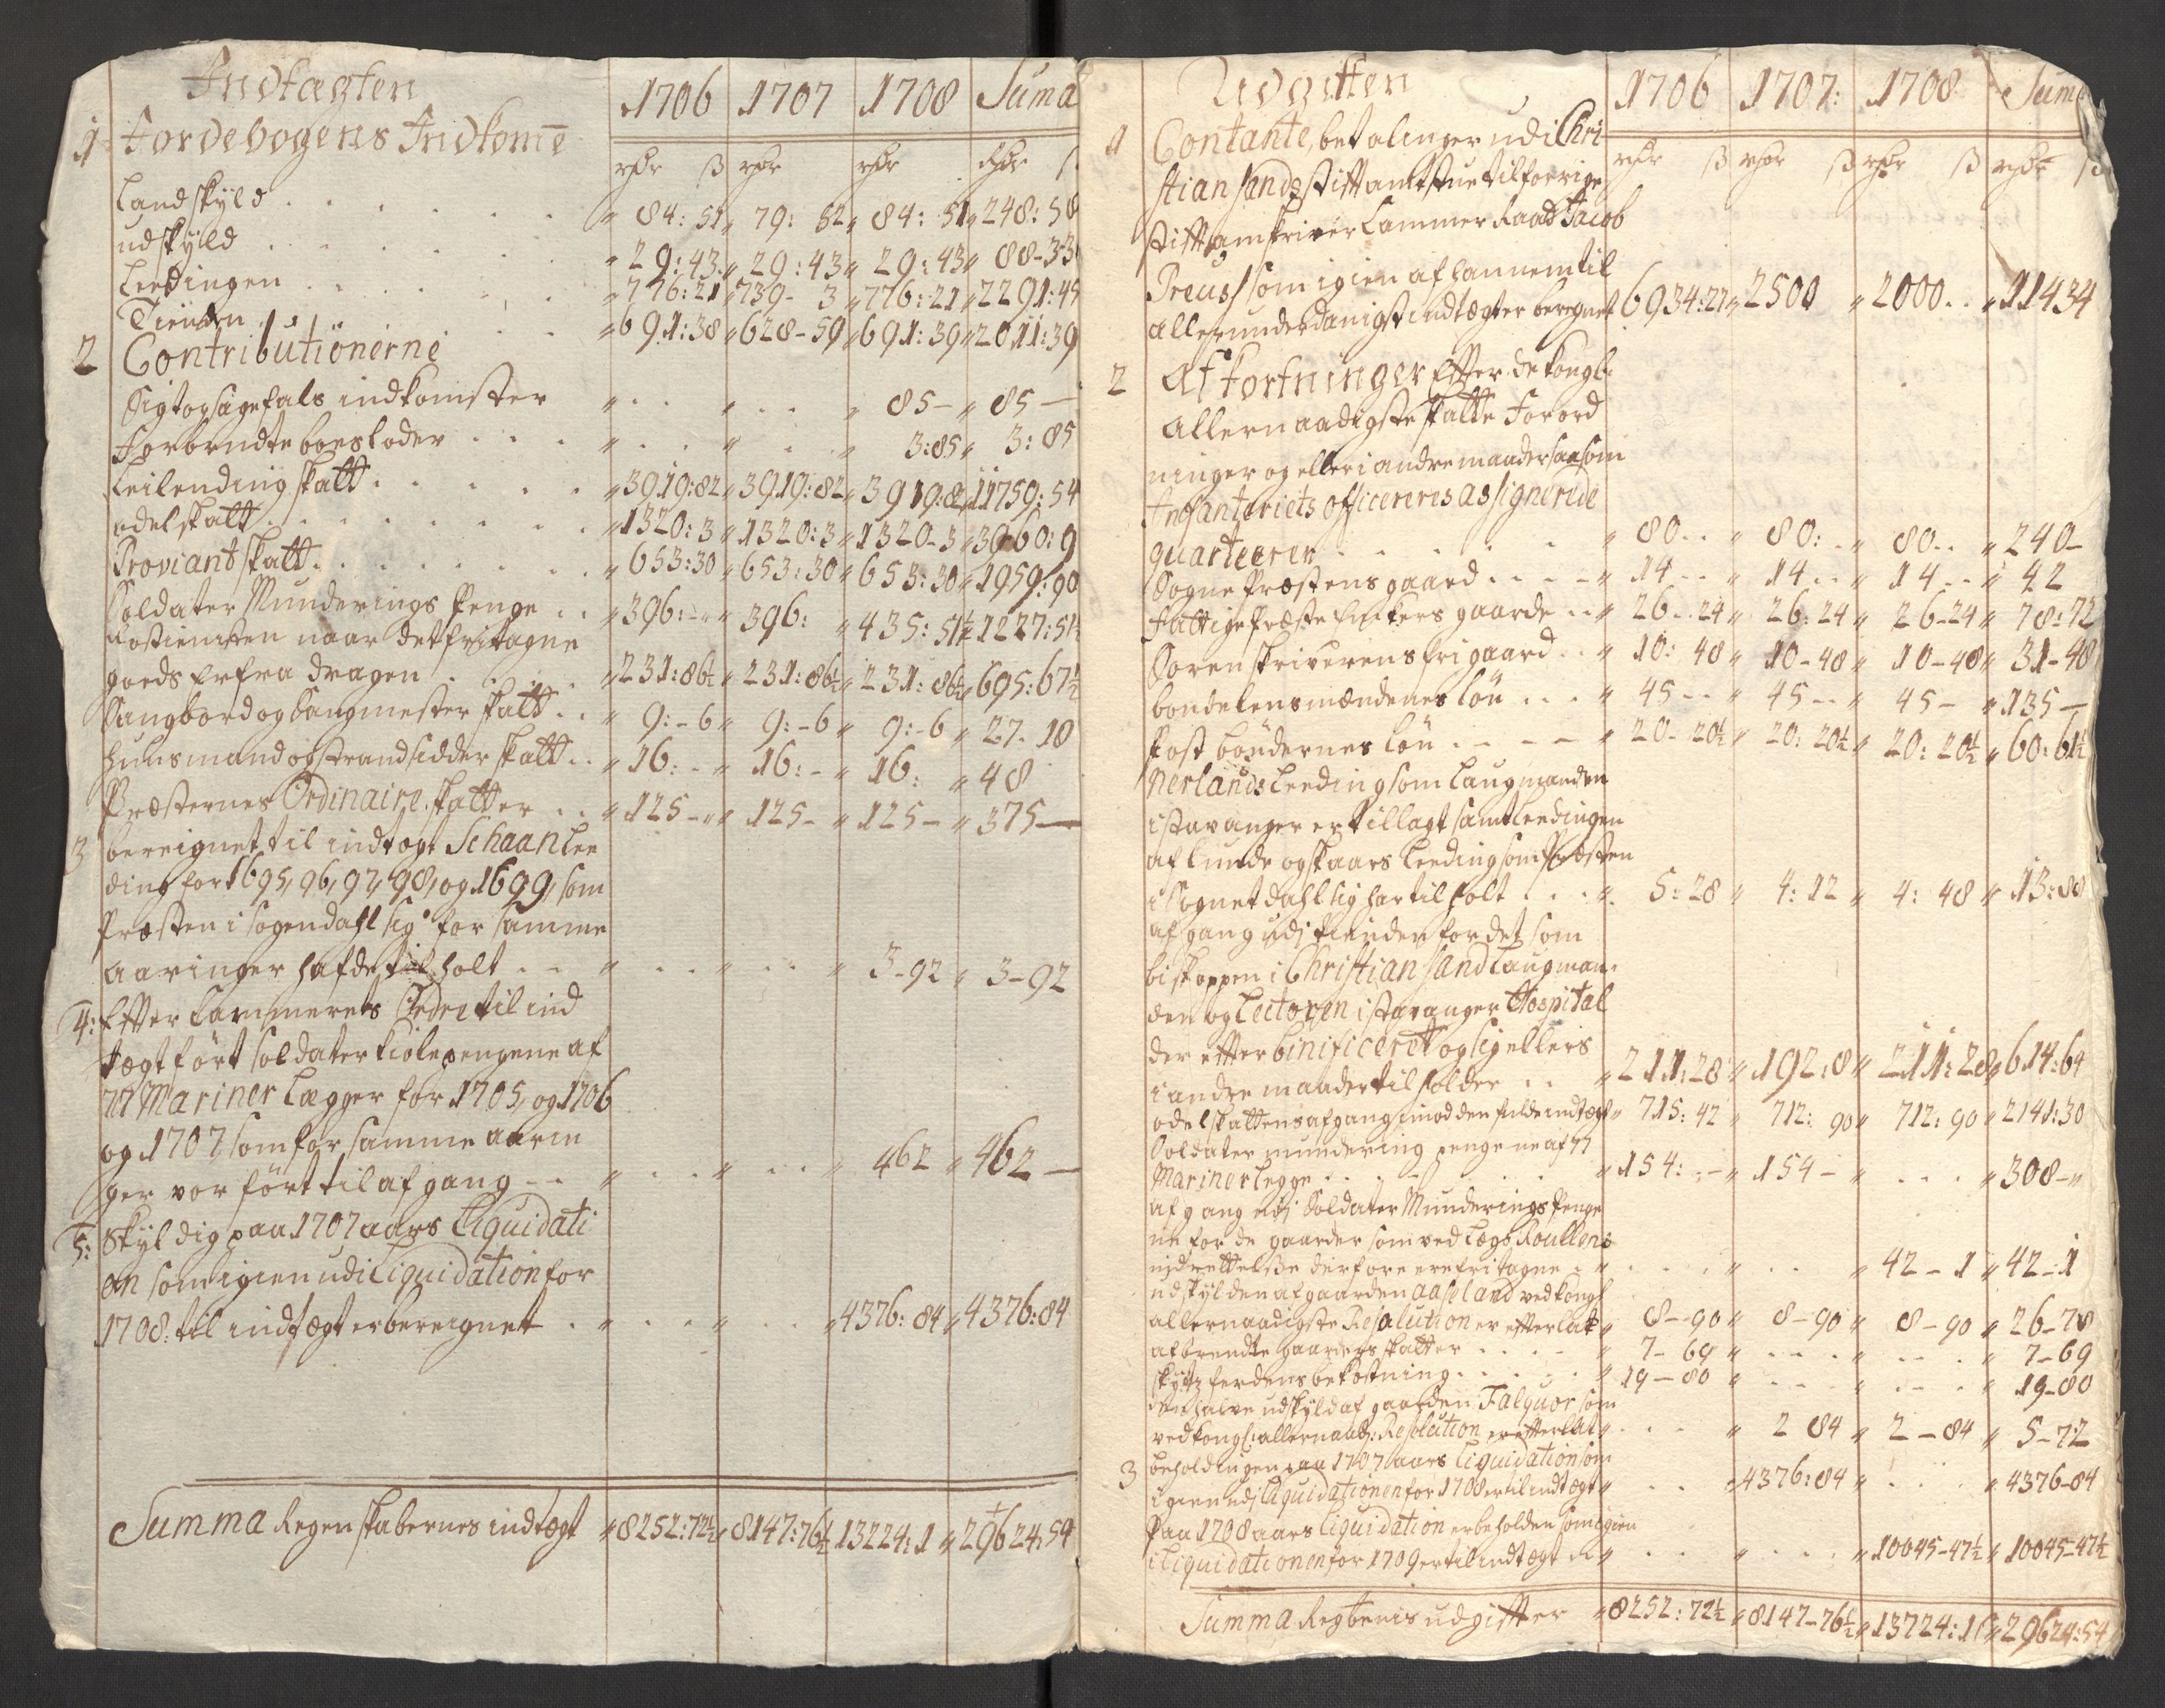 Indtægten 1706 1707 1708 Suma
1 Jordebogens Indkome rhdr ß rhdr rhdr Rhdr ß
Landskyld . . . . . " 84: 51 " 79: 52 " 84: 51 " 248: 58
udskyld . . . . . " 29: 43 " 29: 43 " 29: 43 " 88-33
Leedingen . . . . " 776: 21 " 739- 3 " 776: 21 " 2291: 45
Tienden . . . . " 691: 38 " 628-59 " 691: 39 " 2011: 39
2 Contributionerne
Sigt og sagefals indkomster " . . " . . " 85- " 85-
Forbrudte boeslader . . . " . . " . . " 3: 85 " 3: 85
Leilending skatt . . . . . " 3919: 82 " 3919: 82 " 3919: 82 " 11759: 54
odelskatt . . . . . " 1320: 3 " 1320: 3 " 1320-3 " 3960: 9
Proviant skatt . . . . . " 653: 30 " 653: 30 " 653: 30 " 1959: 90
Soldater Munderings Penge . . " 396: - " 396: " 435: 51½ " 1227: 51½
Rostienisten naar det fritagne
goeds er fra dragen . . . . " 231: 86½ " 231: 86½ " 231: 86½ " 695: 67½
Saugbord og Saugmester skatt . . " 9: -6 " 9: -6 " 9: -6 " 27. 18
Huusmand og strandsidder skatt . . " 16: - " 16: - " 16: " 48
Præsternes Ordinaire skatter . . " 125- " 125- " 125- " 375-
3 bereignet til indtægt Schaan Lee
ding for 1695, 96, 97, 98, og 1699, som
Præsten i Sogendahl sig for samme
aaringer hafde til holt . . " . . " . . " 3-92 " 3-92
4: Efter Cammerets Ordre til ind
tægt fört soldater kiole pengene af
77 Mariner Lægger for 1705, og 1706
og 1707 som for samme aarin
ger vor fört til afgang - - " . . " . . " 462 " 462 -
5: Skyldig paa 1707 aars Liquidati
on som igien udi Liquidation for
1708: til indtægt er bereignet . . " . . " . . " 4376: 84 " 4376: 84
Summa Regenskabernes indtægt " 8252: 72½ " 8147: 76½ 13224: 1 " 29624: 54
Udgifften 1706 1707: 1708 Sum
1 Contante betalinger udi Chri rhdr ß rhdr ß rhdr ß rhdr ß
stiansands stiftamtstue til forrige
stiftamtskriver Cammer Raad Jacob
Preus som igien af hannem til
allerunderdanigst indtægter beregnet 6934: 27 " 2500 " 2000 . . " 11434
2 Afkortninger Efter de kongl:
allernaadigste skatte Forord
ninger og elleri andre maader saasom
Infanteriets officereres assignerede
quarteerer . . . . . " 80 . . " 80: . . " 80 . . " 240-
Sogne Præstens gaard . . . - " 14 . . " 14 . . " 14 . . " 42
Fattige Præste Enkers gaarde . . " 26 . . 24 " 26: 24 " 26-24 " 78: 72
Sorenskriverens frigaard . . " 10: 48 " 10-48 " 10-48 " 31-48
bondelensmændenes lön . . . " 45 - - " 45 - - " 45 - " 135 -
Post böndernes lön . - - - " 20- 20½ " 20: 20½ " 20: 20½ " 60: 61½
Nerlands Leeding som Laugmanden
i Stavanger er tillagt samt Leedingen
af Lunde og Skaars Leeding som Præsten
i Sognet dahl sig har til holt . . . " 5: 28 " 4: 12 " 4: 48 " 13: 88
afgang udi tienden for det som
biskoppen i Christiansand Laugman
den og Lectoren i Stavanger Hospital
der effter binificeret og sig ellers
i andre maader tilholder . . " 211: 28 " 192: 8 " 211: 28 " 614: 64
odelskattens afgang imod den fulde indtægt " 715: 42 " 712: 90 " 712: 90 " 2141: 30
Soldater mundering pengene af 77
Mariner Legge . . . . . " 154: - " 154 - " . . . " 308-"
afgang udj Soldater Munderings Penge
ne for de gaarder som ved Legs Roullens
indrettelse derfore ere fritagne . " . . " . . " 42 - 1 " 42-1
udskylden af gaarden Aaseland ved kongl
allernaadigste Resolution er efterlat " 8--90 " 8-90 " 8-90 " 26-78
afbrendte gaarders skatter . . . - " 7-69 " . . . " . . . " 7-69
skydtz ferdens bekostning . . . . . " 19-80 " . . . " . . . " 19-80
den halve udskyld af gaarden Falquor som
ved kongl: allernaad: Resolution er efterlat " . . " 2 84 " 2-84 " 5-72
3 beholdingen paa 1707 aars Liquidation som
igien udj Liquidationen for 1708 er til indtægt " . . " 4376: 84 " . . " 4376-84
Paa 1708 aars Liquidation er beholden som igien
i Liquidationen for 1709 er til indtægt " . . " . . " 10045-47½ " 10045-47½
Summa Regbenis udgiffter " 8252: 72½ " 8147-76½ " 13724: 1 " 29624: 54